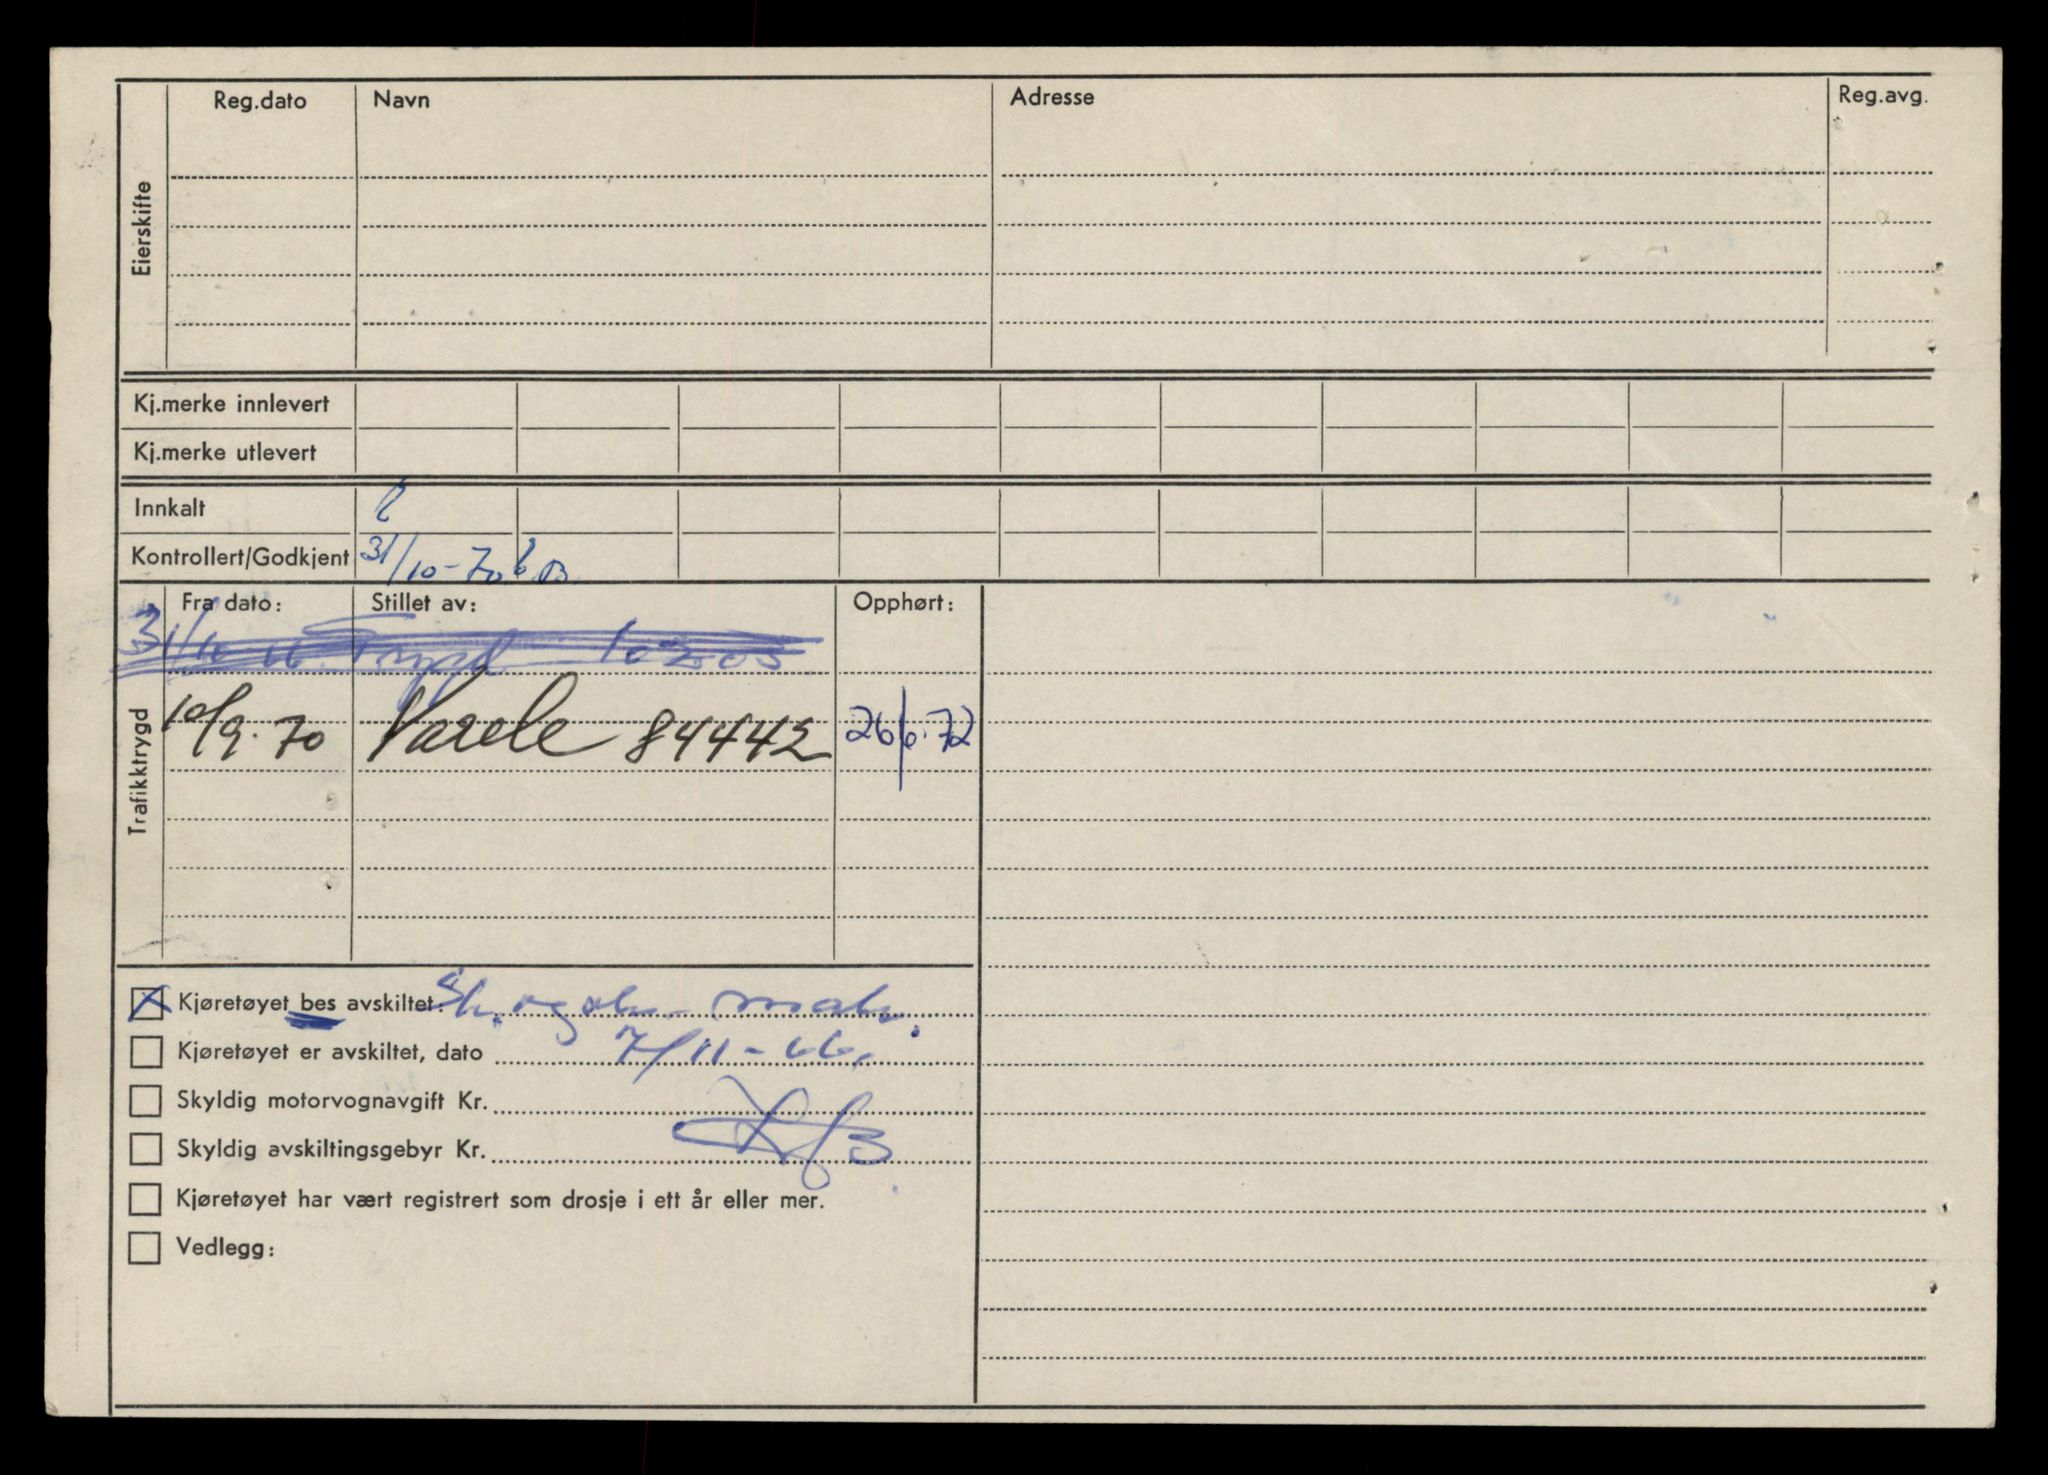 Reg.dato Navn Adresse Reg.avg.
Eierskifte
Kj.merke innlevert
Kj.merke utlevert
Innkalt
Kontrollert/Godkjent 31/10-70
Trafikktrygd
Fra dato: Stillet av: Opphørt:
31/10 66. Trygd 102503
10/9.70 84442 26/6.72
Kjøretøyet bes avskiltet:
Kjøretøyet er avskiltet, dato 7/11-66.
Skyldig motorvognavgift Kr.
Skyldig avskiltingsgebyr Kr.
Kjøretøyet har vært registrert som drosje i ett år eller mer.
Vedlegg: